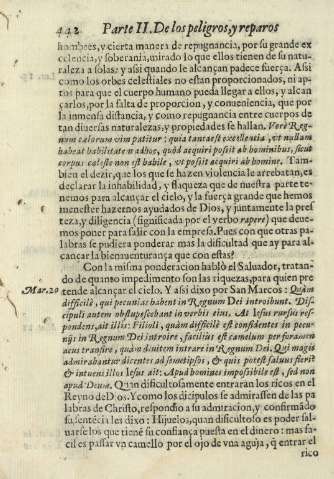 442 Parte II. De los peligros, y reparos
hombres, y cierta manera de repugnancia, por su grande ex
celencia, y soberania, mirado lo que ellos tienen de su natu-
raleza a solas: y assi quando le alcançan padece fuerça. Assi
como los orbes celestiales no estan proporcionados, ni ap-
tos para que el cuerpo humano pueda llegar a ellos, y alcan
çarlos, por la falta de proporcion, y conveniencia, que por
la inmensa distancia, y como repugnancia entre cuerpos de
tan diuersas naturalezas, y propiedades se hallan. Veri Reg-
num cælorum vim patitur: quia tanta est excellentia, vt nullam
habeat habilitatem ad hoc, quòd acquiri possit ab hominibus, sicut
corpus cæleste non est habile, vt possit acquiri ab homine. Tam-
bien el dezir, que los que se hazen violencia le arrebatan, es
declarar la inhabilidad, y flaqueza que de nuestra parte te-
nemos para alcançar el cielo, y la fuerça grande que hemos
menester hazernos ayudados de Dios, y juntamente la pres
teza, y diligencia (significada por el verbo rapere) que deue-
mos poner para salir con la empresa. Pues con que otras pa-
labras se pudiera ponderar mas la dificultad que ay para al-
cançar la bienauenturança que con estas?
Con la misma ponderacion hablò el Saluador, tratan-
do de quanto impedimento son las riquezas, para quien pre
Mar. 20 tende alcançar el cielo. Y assi dixo por San Marcos: Quàm
difficilè, qui pecunias habent in Regnum Dei introibunt. Dis-
cipuli autem obstupescebant in verbis eius. At Iesus rursùs res-
pondens, ait illis: Filioli, quàm difficilè est confidentes in pecu-
nijs in Regnum Dei introire, facilius est camelum per foramen
acus transire, quàm diuitem intrare in Regnum Dei. Qui magis
admirabantur dicentes ad semetipsos, & quis potest saluus fieri?
& intuens illos Iesus ait: Apud homines impossibile est, sed non
apud Deum. Quan dificultosamente entraran los ricos en el
Reyno de Dios. Y como los dicipulos se admirassen de las pa
labras de Christo, respondio a su admiracion, y confirmãdo
su sentẽcia les dixo: Hijuelos, quan dificultoso es poder sal-
uarse los que tienẽ su confiança puesta en el dinero: mas fa-
cil es passar vn camello por el ojo de vna aguja, q̃ entrar el
rico